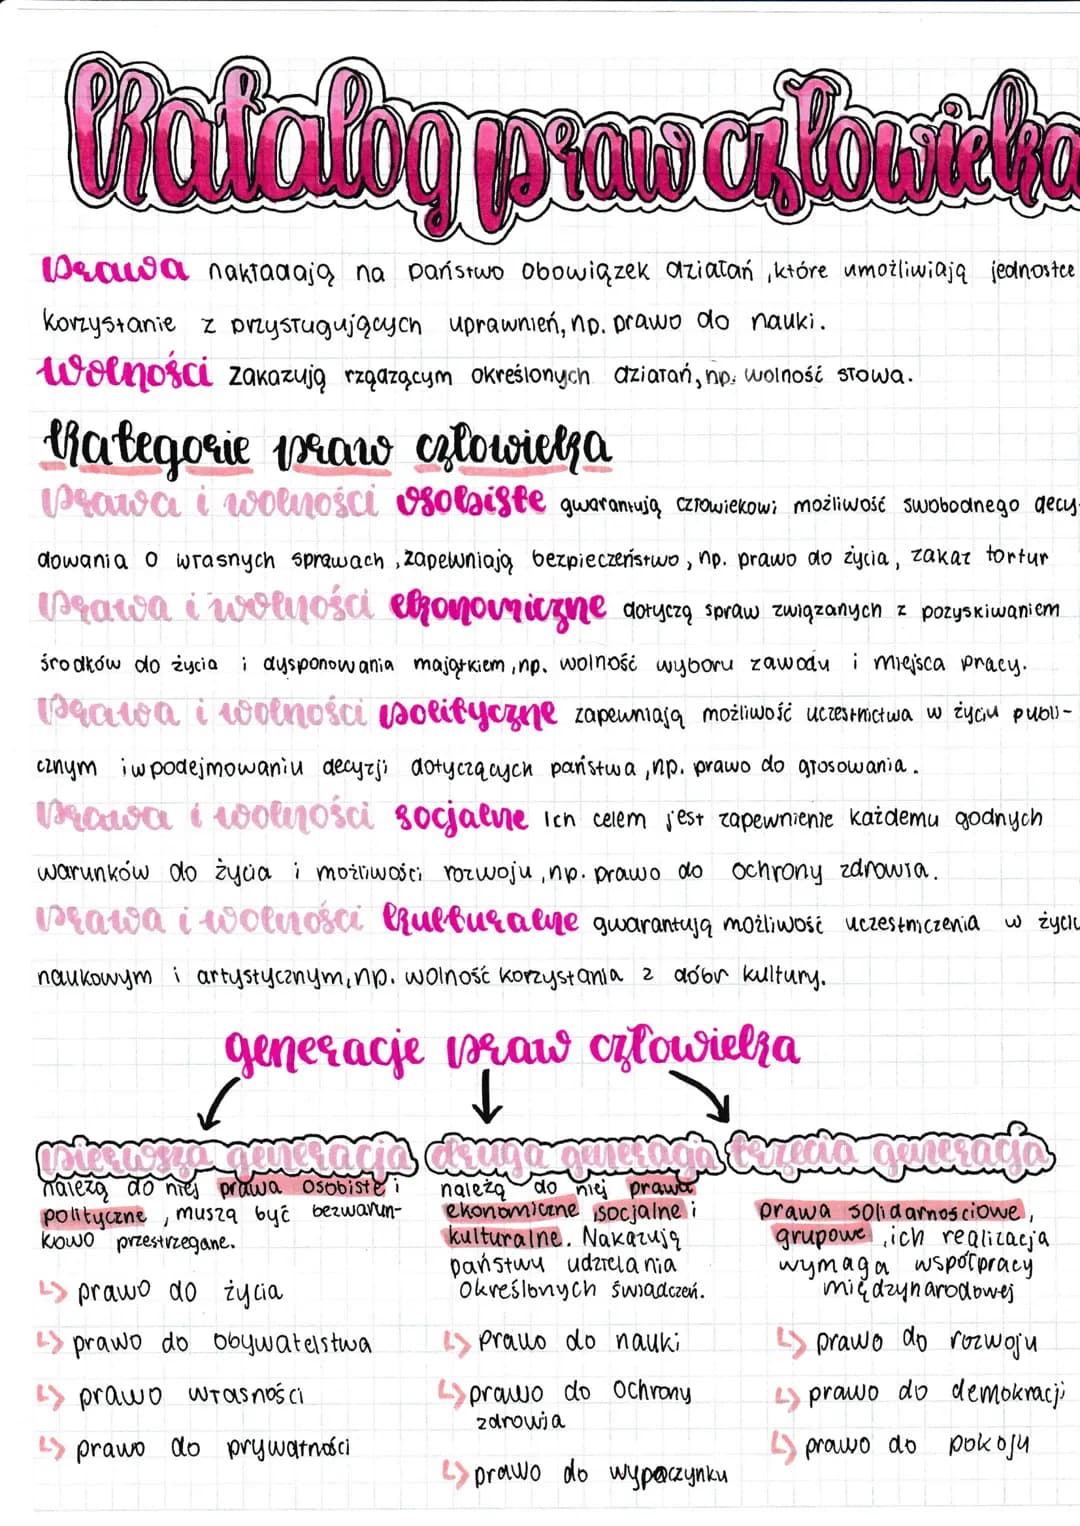 Katalog praw człowieka
Prawa nakładają na państwo obowiązek działań, które umożliwiają jednostce
korzystanie z przysługujących uprawnień, np. prawo do nauki.
Wolności zakazują rządzącym określonych działań, np. wolność słowa.
Kategorie praw człowieka
Prawa i wolności osobiste gwarantują człowiekowi możliwość swobodnego decy-
dowania o własnych sprawach, zapewniają bezpieczeństwo, np. prawo do życia, zakaz tortur
Prawa i wolności ekonomiczne dotyczą spraw związanych z pozyskiwaniem
środków do życia i dysponowania majątkiem, np. wolność wyboru zawodu i miejsca pracy.
Prawa i wolności polityczne zapewniają możliwość uczestnictwa w życiu publi-
cznym i w podejmowaniu decyzji dotyczących państwa, np. prawo do głosowania.
Prawa i wolności socjalne Ich celem jest zapewnienie każdemu godnych
warunków do życia i możliwości rozwoju, np. prawo do ochrony zdrowia.
Prawa i wolności kulturalne gwarantują możliwość uczestniczenia w życiu
naukowym i artystycznym, np. wolność korzystania z dóbr kultury.
generacje praw człowieka
pierwsza generacja
należą do niej prawa osobiste i
polityczne, muszą być bezwarun-
kowo przestrzegane.
prawo do życia
prawo do obywatelstwa
prawo własności
prawo do prywatności
druga generacja
należą do niej prawa
ekonomiczne, socjalne i
kulturalne. Nakazują
państwu udzielania
określonych świadczeń.
prawo do nauki
prawo do ochrony
zdrowia
prawo do wypoczynku
trzecia generacja
prawa solidarnościowe,
grupowe, ich realizacja
wymaga współpracy
międzynarodowej
prawo do rozwoju
prawo do demokracji
prawo do pokoju